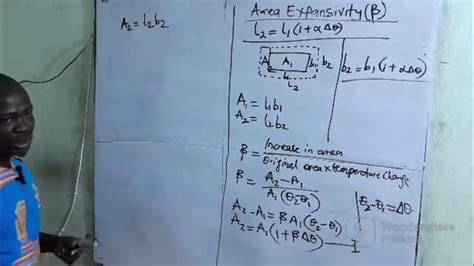 A₂ = l₂b₂
Area Expansivity (β)
l₂ = l₁(1+αΔθ)
A₂ A₁ b₁ b₂
l₁
l₂
b₂ = b₁(1+αΔθ)
A₁ = l₁b₁
A₂ = l₂b₂
β = Increase in area
Original area x temperature change
β = A₂ - A₁
A₁(θ₂-θ₁)
θ₂-θ₁ = Δθ
A₂ - A₁ = βA₁(θ₂-θ₁)
A₂ = A₁(1+βΔθ) — I
Wondershare
Filmora